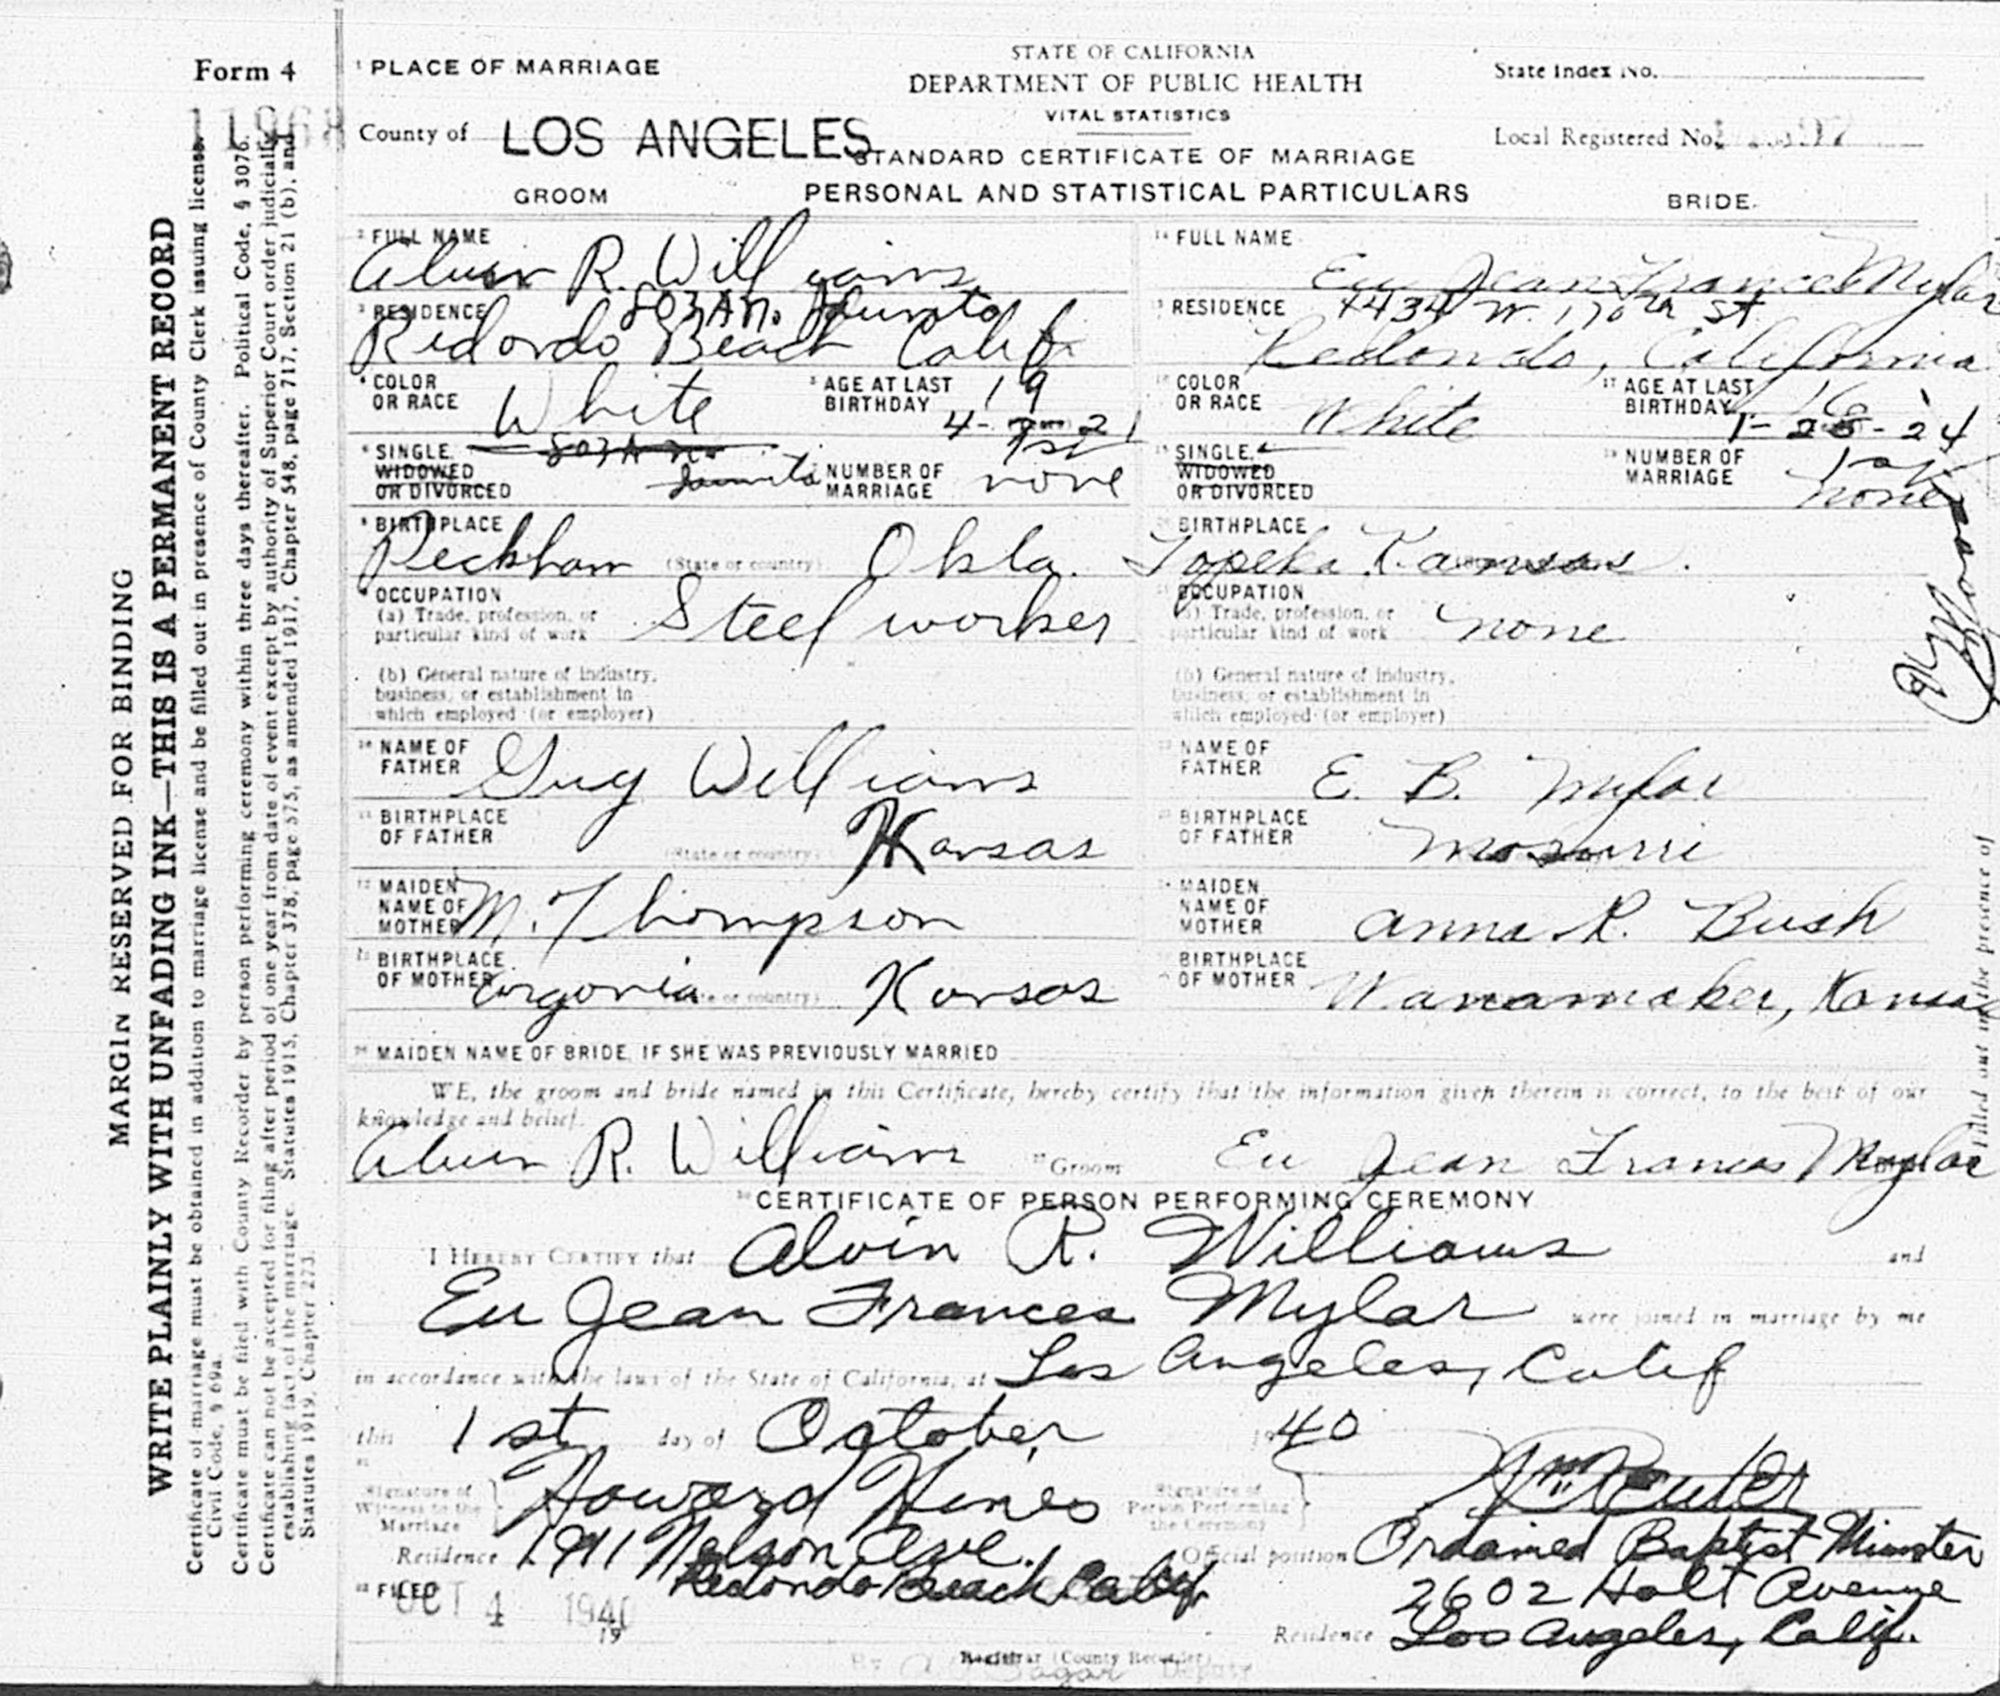 Form 4
1 PLACE OF MARRIAGE
STATE OF CALIFORNIA
DEPARTMENT OF PUBLIC HEALTH
VITAL STATISTICS
State Index No.
County of LOS ANGELES
STANDARD CERTIFICATE OF MARRIAGE
Local Registered No.
GROOM
PERSONAL AND STATISTICAL PARTICULARS
BRIDE
2 FULL NAME
Alvin R. Williams
14 FULL NAME
Eu Jean Frances Mylar
3 RESIDENCE 803A N.
Redondo Beach Calif
15 RESIDENCE 4434 W. 170th St
Redondo, California
4 COLOR OR RACE White
5 AGE AT LAST BIRTHDAY 19
4- -21
16 COLOR OR RACE White
17 AGE AT LAST BIRTHDAY 16
1-28-24
6 SINGLE, WIDOWED OR DIVORCED
803A No
7 NUMBER OF MARRIAGE 1st
none
18 SINGLE, WIDOWED OR DIVORCED
19 NUMBER OF MARRIAGE 1st
none
8 BIRTHPLACE
Peckham (State or country) Okla.
20 BIRTHPLACE
Topeka, Kansas.
9 OCCUPATION
(a) Trade, profession, or
particular kind of work Steel worker
21 OCCUPATION
(a) Trade, profession, or
particular kind of work none
(b) General nature of industry,
business, or establishment in
which employed (or employer)
(b) General nature of industry,
business, or establishment in
which employed (or employer)
10 NAME OF FATHER Guy Williams
22 NAME OF FATHER E. B. Mylar
11 BIRTHPLACE OF FATHER
(State or country) Kansas
23 BIRTHPLACE OF FATHER
12 MAIDEN NAME OF MOTHER M. Thompson
24 MAIDEN NAME OF MOTHER Anna R. Bush
13 BIRTHPLACE OF MOTHER Argonia (State or country) Kansas
25 BIRTHPLACE OF MOTHER Wanamaker, Kansas
26 MAIDEN NAME OF BRIDE, IF SHE WAS PREVIOUSLY MARRIED
WE, the groom and bride named in this Certificate, hereby certify that the information given therein is correct, to the best of our
knowledge and belief.
Alvin R. Williams Groom Eu Jean Frances Mylar
CERTIFICATE OF PERSON PERFORMING CEREMONY
I HEREBY CERTIFY that Alvin R. Williams and
Eu Jean Frances Mylar were joined in marriage by me
in accordance with the laws of the State of California, at Los Angeles, Calif
this 1st day of October 1940
Signature of Witness to the Marriage Howard Hines
Signature of Person Performing the Ceremony Wm Reuter
Residence 1911 Nelson Ave.
Redondo Beach Calif
Official position Ordained Baptist Minister
2602 Holt Avenue
FILED OCT 4 1940
19
Residence Los Angeles, Calif.
Registrar (County Recorder)
By Deputy
MARGIN RESERVED FOR BINDING
WRITE PLAINLY WITH UNFADING INK—THIS IS A PERMANENT RECORD
Certificate of marriage must be obtained in addition to marriage license and be filled out in presence of County Clerk issuing license.
Civil Code, § 69a.
Certificate must be filed with County Recorder by person performing ceremony within three days thereafter. Political Code, § 3076.
Certificate can not be accepted for filing after period of one year from date of event except by authority of Superior Court order judicially
establishing fact of the marriage. Statutes 1915, Chapter 378, page 575, as amended 1917, Chapter 548, page 717, Section 21 (b), and
Statutes 1919, Chapter 273.
Filled out in the presence of